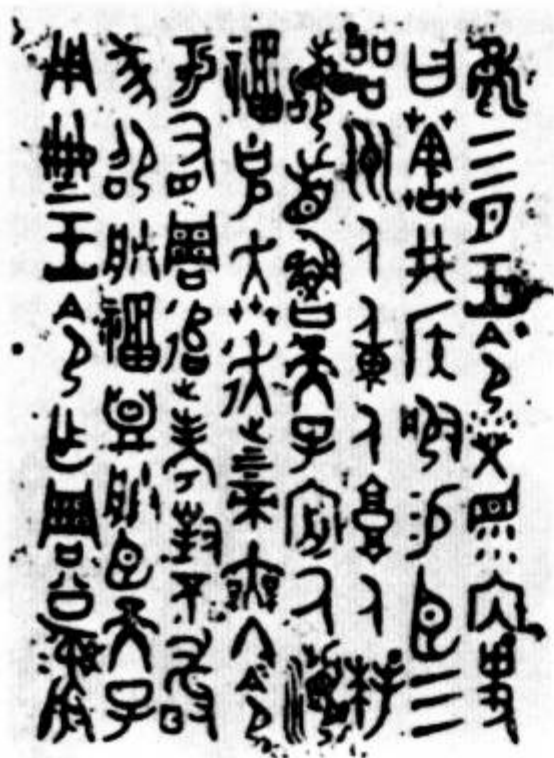 隹三月王令𤇾眔內史
曰𦯔井侯服易臣三
品州人東人𩫏人拜
𩒨首魯天子𡨦厥瀕
福克奔走上下帝無冬令
于有周追考對不敢
㒸邵朕福盟朕臣天子
用典王令乍周公彝